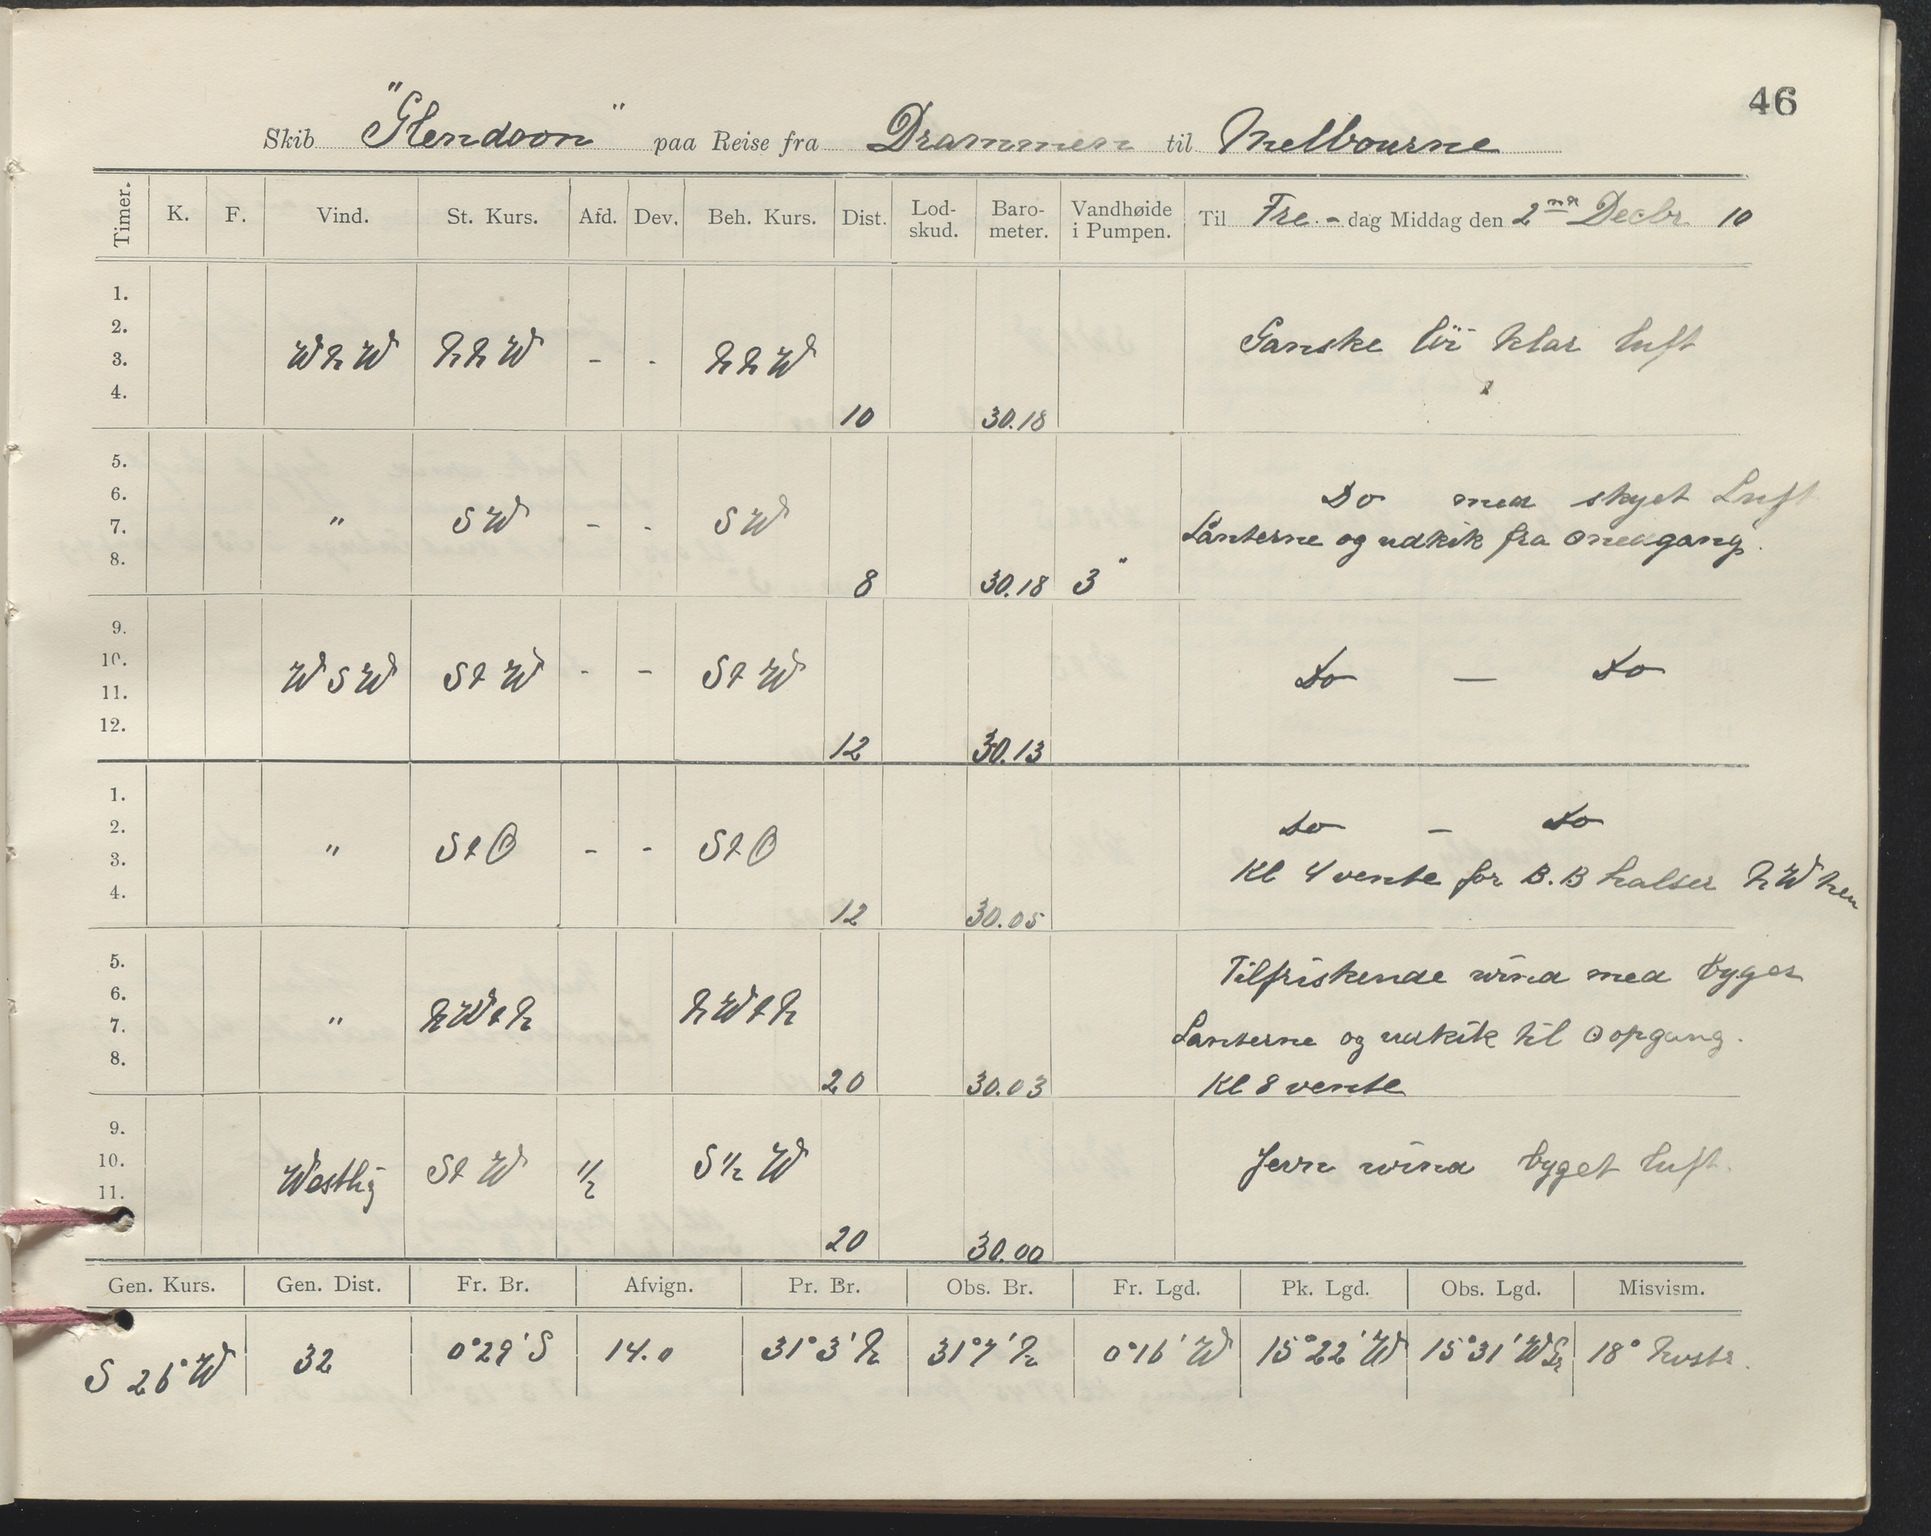 46
Skib "Glendoon" paa Reise fra Drammen til Melbourne
Timer. K. F. Vind. St. Kurs. Afd. Dev. Beh. Kurs. Dist. Lod-skud. Baro-meter. Vandhøide i Pumpen. Til Fre.- dag Middag den 2nd Decbr 10
1.
2.
3. WNW NNW - - NNW Ganske löi klar luft
4. 10 30.18
5.
6. Do med skyet Luft
7. " SW - - SW Lanterne og udkik fra ☉nedgang.
8. 8 30.18 3"
9.
10. WSW StW - - StW Do — Do
11.
12. 12 30.13
1.
2. Do - Do
3. " StO - - StO Kl 4 vente for B.B halser NW hen
4. 12 30.05
5. Tilfriskende vind med byger
6.
7. " NWtN NWtN Lanterne og udkik til ☉opgang.
8. 20 30.03 Kl 8 vente
9.
10. Westlig StW 1/2 S 1/2 W Jevn vind byget luft.
11.
20 30.00
Gen. Kurs. Gen. Dist. Fr. Br. Afvign. Pr. Br. Obs. Br. Fr. Lgd. Pk. Lgd. Obs. Lgd. Misvism.
S 26° W 32 0°29' S 14.0 31°3' N 31°7' N 0°16' W 15°22' W 15°31' W Gr 18° hvstr.